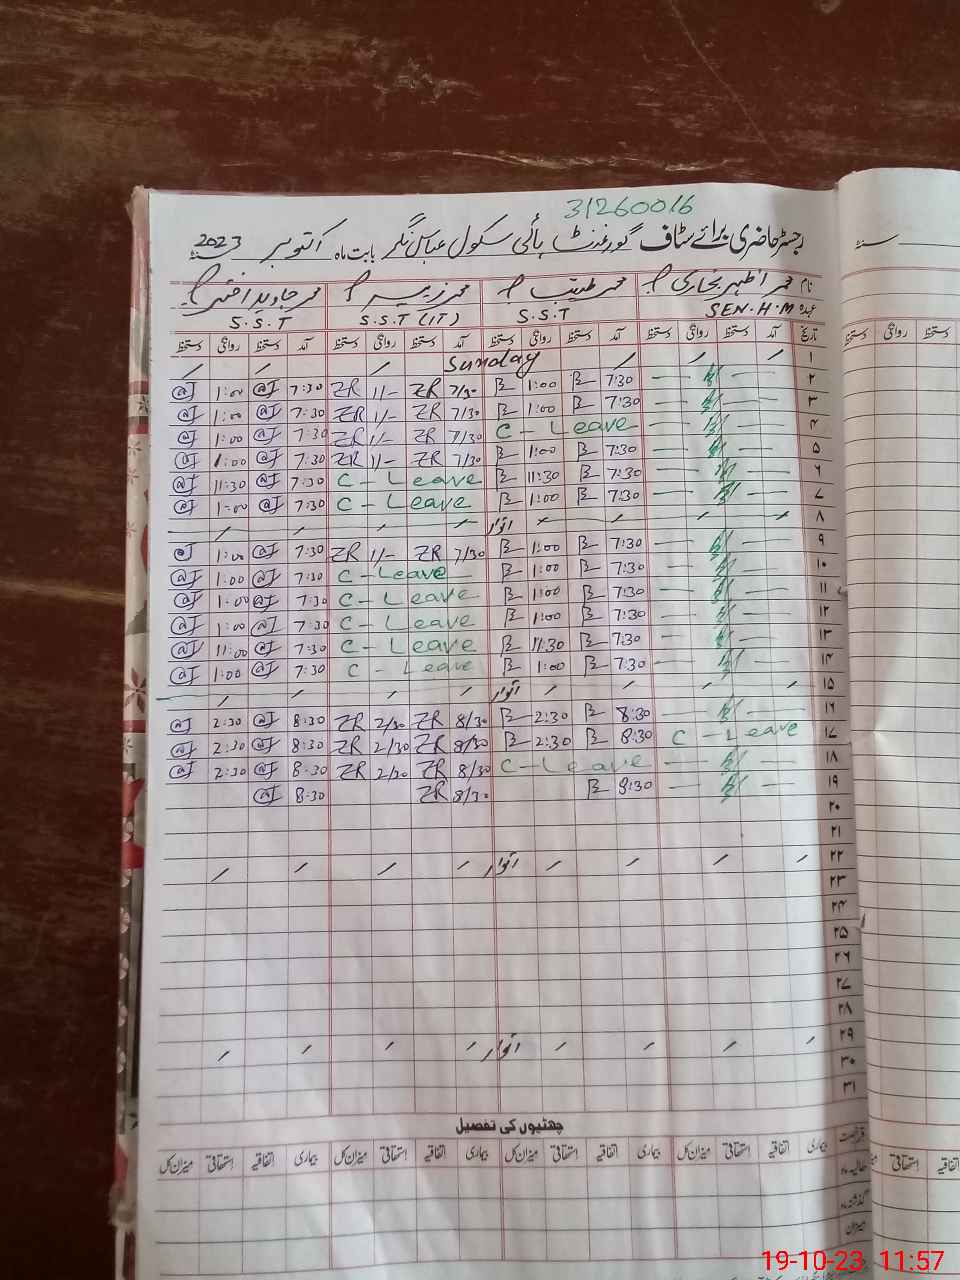 31260016
رجسٹر حاضری برائے سٹاف گورنمنٹ ہائی سکول عباس نگر بابت ماہ اکتوبر 2023
نام محمد اظہر بخاری محمد طیب محمد زبیر محمد جاوید اختر
عہدہ SEN.H.M S.S.T S.S.T (IT) S.S.T
تاریخ آمد دستخط روانگی دستخط آمد دستخط روانگی دستخط آمد دستخط روانگی دستخط آمد دستخط روانگی دستخط
۱ Sunday
۲ 7:30 B 1:00 B 7/30 ZR 1/- ZR 7:30 @J 1:00 @J
۳ 7:30 B 1:00 B 7/30 ZR 1/- ZR 7:30 @J 1:00 @J
۴ C - Leave 7/30 ZR 1/- ZR 7:30 @J 1:00 @J
۵ 7:30 B 1:00 B 7/30 ZR 1/- ZR 7:30 @J 1:00 @J
۶ 7:30 B 11:30 B C - Leave 7:30 @J 11:30 @J
۷ 7:30 B 1:00 B C - Leave 7:30 @J 1:00 @J
۸ اتوار
۹ 7:30 B 1:00 B 7/30 ZR 1/- ZR 7:30 @J 1:00 @J
۱۰ 7:30 B 1:00 B C - Leave 7:30 @J 1:00 @J
۱۱ 7:30 B 1:00 B C - Leave 7:30 @J 1:00 @J
۱۲ 7:30 B 1:00 B C - Leave 7:30 @J 1:00 @J
۱۳ 7:30 B 11:30 B C - Leave 7:30 @J 11:00 @J
۱۴ 7:30 B 1:00 B C - Leave 7:30 @J 1:00 @J
۱۵ اتوار
۱۶ 8:30 B 2:30 B 8/30 ZR 2/30 ZR 8:30 @J 2:30 @J
۱۷ C - Leave 8:30 B 2:30 B 8/30 ZR 2/30 ZR 8:30 @J 2:30 @J
۱۸ C - Leave 8/30 ZR 2/30 ZR 8:30 @J 2:30 @J
۱۹ 8:30 B 8/30 ZR 8:30 @J
۲۰
۲۱
۲۲ اتوار
۲۳
۲۴
۲۵
۲۶
۲۷
۲۸
۲۹ اتوار
۳۰
۳۱
چھٹیوں کی تفصیل
بیماری اتفاقیہ استحقاقی میزان کل بیماری اتفاقیہ استحقاقی میزان کل بیماری اتفاقیہ استحقاقی میزان کل
حالیہ ماہ
گذشتہ ماہ
میزان
سنہ
روانگی دستخط
اتفاقیہ استحقاقی
19-10-23 11:57